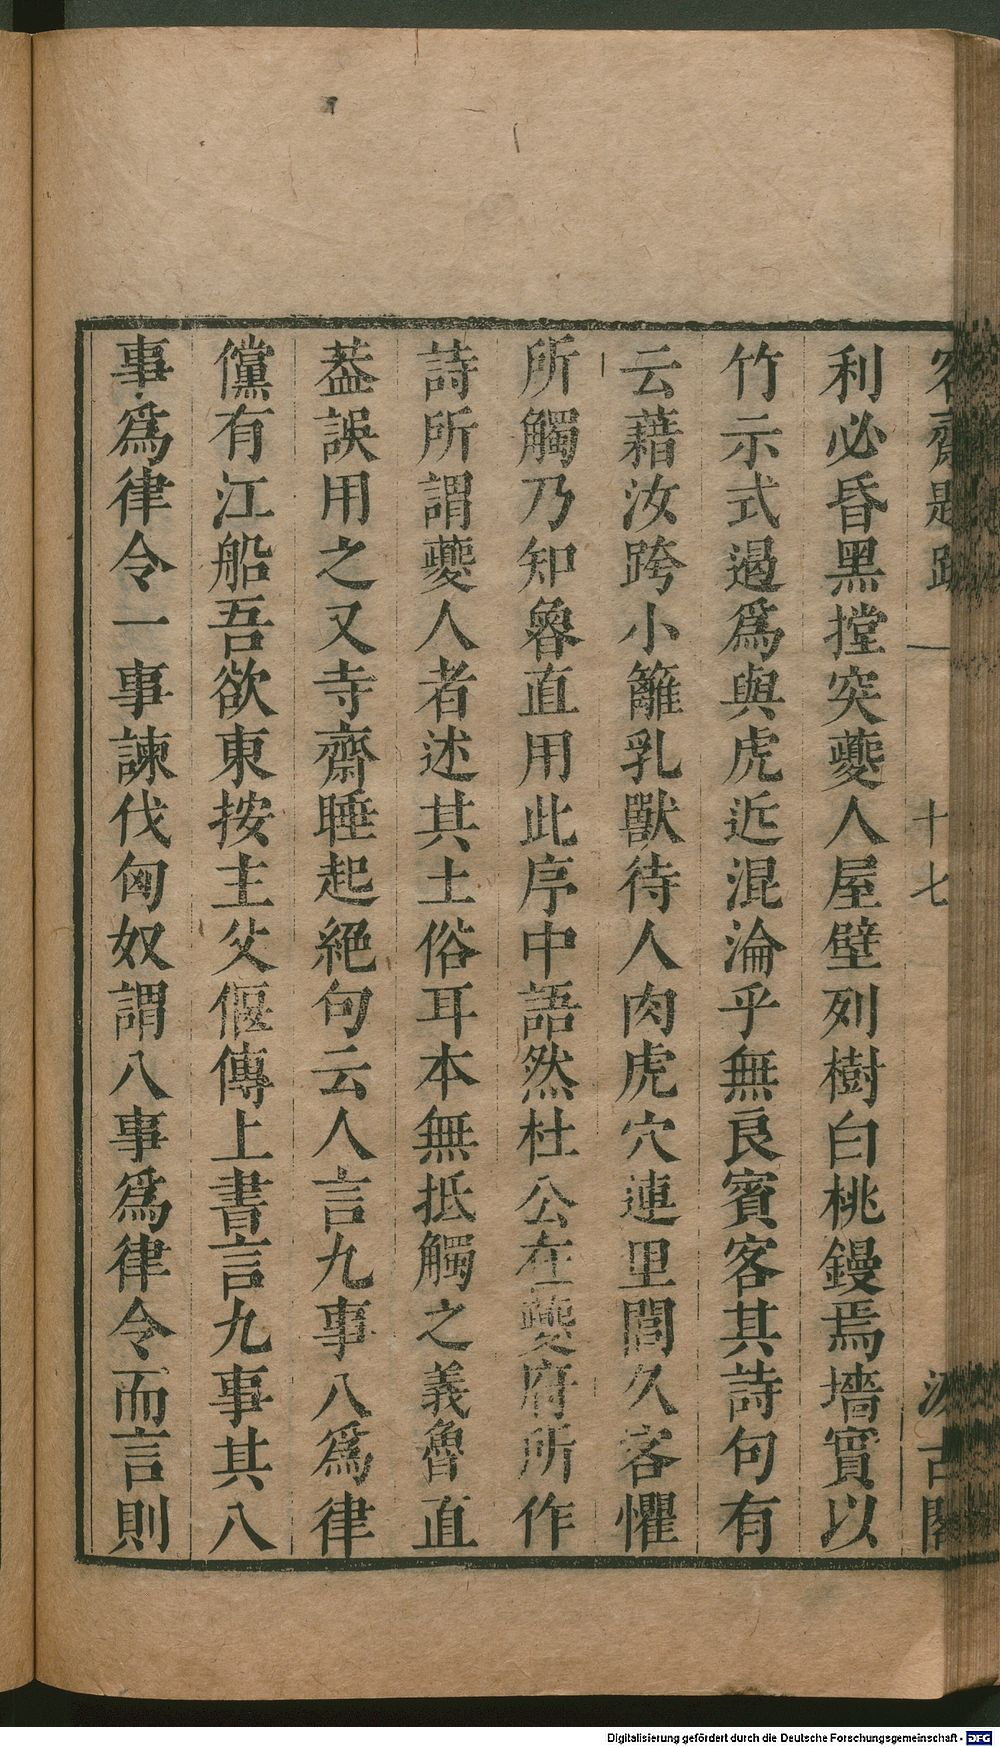 容齋題跋 一 十七 汲古閣
利必昏黑摚突夔人屋壁列樹白桃鏝焉墻實以
竹示式遏爲與虎近混淪乎無良賓客其詩句有
云藉汝跨小籬乳獸待人肉虎穴連里閭久客懼
所觸乃知魯直用此序中語然杜公在夔府所作
詩所謂夔人者述其土俗耳本無抵觸之義魯直
葢誤用之又寺齋睡起絕句云人言九事八爲律
儻有江船吾欲東按主父偃傳上書言九事其八
事爲律令一事諫伐匈奴謂八事爲律令而言則
Digitalisierung gefördert durch die Deutsche Forschungsgemeinschaft - DFG